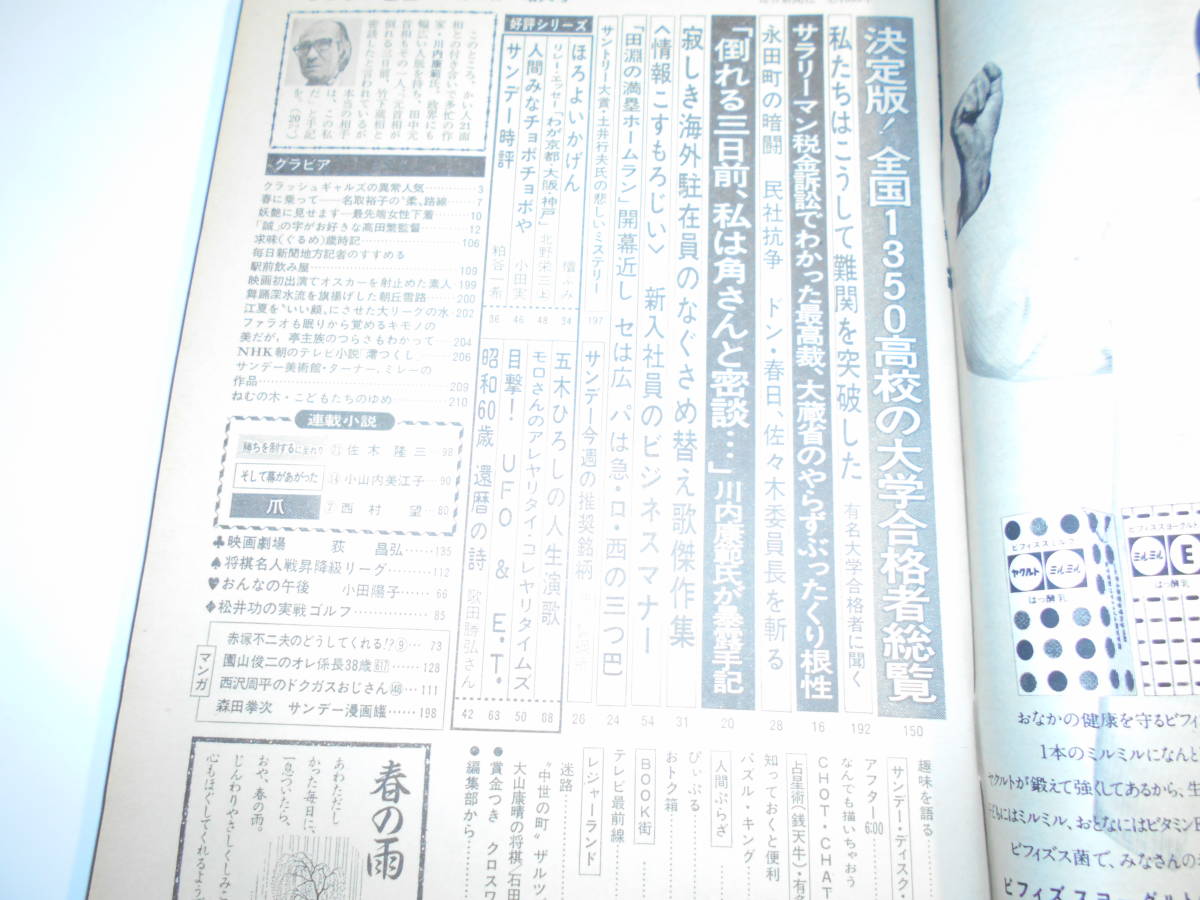 決定版!全国1350高校の大学合格者総覧 150
私たちはこうして難関を突破した 有名大学合格者に聞く 192
サラリーマン税金訴訟でわかった最高裁、大蔵省のやらずぶったくり根性 16
永田町の暗闘 民社抗争 ドン・春日、佐々木委員長を斬る 28
「倒れる三日前、私は角さんと密談…」川内康範氏が暴露手記 20
寂しき海外駐在員のなぐさめ替え歌傑作集 31
〈情報こすもろじい〉 新入社員のビジネスマナー 54
「田淵の満塁ホームラン」開幕近し セは広 パは急・ロ・西の三つ巴 24
サントリー大賞・土井行夫氏の悲しいミステリー 197
サンデー今週の推奨銘柄 26
好評シリーズ
ほろよいかげん 34
リレー・エッセー「わが京都・大阪・神戸」 北野栄三 48
人間みなチョボチョボや 小田実 46
サンデー時評 粕谷一希 36
五木ひろしの人生演歌 88
モロさんのアレヤリタイ・コレヤリタイムズ 50
目撃! UFO & E・T・ 63
昭和60歳 還暦の詩 歌田勝弘さん 42
このところ、かい人21面
相との付き合いで多忙の作
家・川内康範氏。政界にも
幅広い人脈を持ち、田中元
首相もその一人。元首相が
倒れる三日前、竹下蔵相と
密談したと言われているが
本当の相手
は、この私
だ」と手記
を。(20㌻)
グラビア
クラッシュギャルズの異常人気 3
春に乗って――名取裕子の“柔、路線 7
妖艶に見せます―最先端女性下着 10
「誠」の字がお好きな高田繁監督 12
求味(ぐるめ)歳時記 106
毎日新聞地方記者のすすめる
駅前飲み屋 109
映画初出演でオスカーを射止めた素人 199
舞踊深水流を旗揚げした朝丘雪路 200
江夏を“いい顔,にさせた大リーグの水 202
ファラオも眠りから覚めるキモノの
美だが,亭主族のつらさもわかって 204
NHK朝のテレビ小説「澪つくし」 206
サンデー美術館・ターナー、ミレーの
作品 209
ねむの木・こどもたちのゆめ 210
連載小説
勝ちを制するに至れり ㉑ 佐木隆三 98
そして幕があがった ⑭ 小山内美江子 90
爪 ⑦ 西村望 80
♣映画劇場 荻昌弘……135
♠将棋名人戦昇降級リーグ……112
♥おんなの午後 小田陽子……66
♦松井功の実戦ゴルフ……85
マンガ
赤塚不二夫のどうしてくれる!?⑨… 73
園山俊二のオレ係長38歳 617……128
西沢周平のドクガスおじさん ㊵…111
森田拳次 サンデー漫画館……198
春の雨
あわただし
かった毎日に、
一息ついたら、
おや、春の雨。
じんわりやさしくしみこ
心もほぐしてくれるよう
趣味を語る
サンデー・ディスク・
アフター6:00
なんでも描いちゃおう
CHOT・CHAT
占星術(銭天牛)・有名
知っておくと便利
パズル・キング
人間ぷらざ
ぴいぷる
おトク箱
BOOK街
テレビ最前線
レジャーランド
迷路
“中世の町”ザルツ
大山康晴の将棋/石田
●賞金つき クロスワ
●編集部から
ビフィズスミルク
ヤクルト
ミルミル
はっ酵乳
ビフィズスヨーグルト
ミルミル
E
はっ酵乳
おなかの健康を守るビフィ
1本のミルミルになんと
ヤクルトが鍛えて強くしてあるから、生
どもにはミルミル、おとなにはビタミンE
ビフィズス菌で、みなさんの
ビフィズスヨーグルト